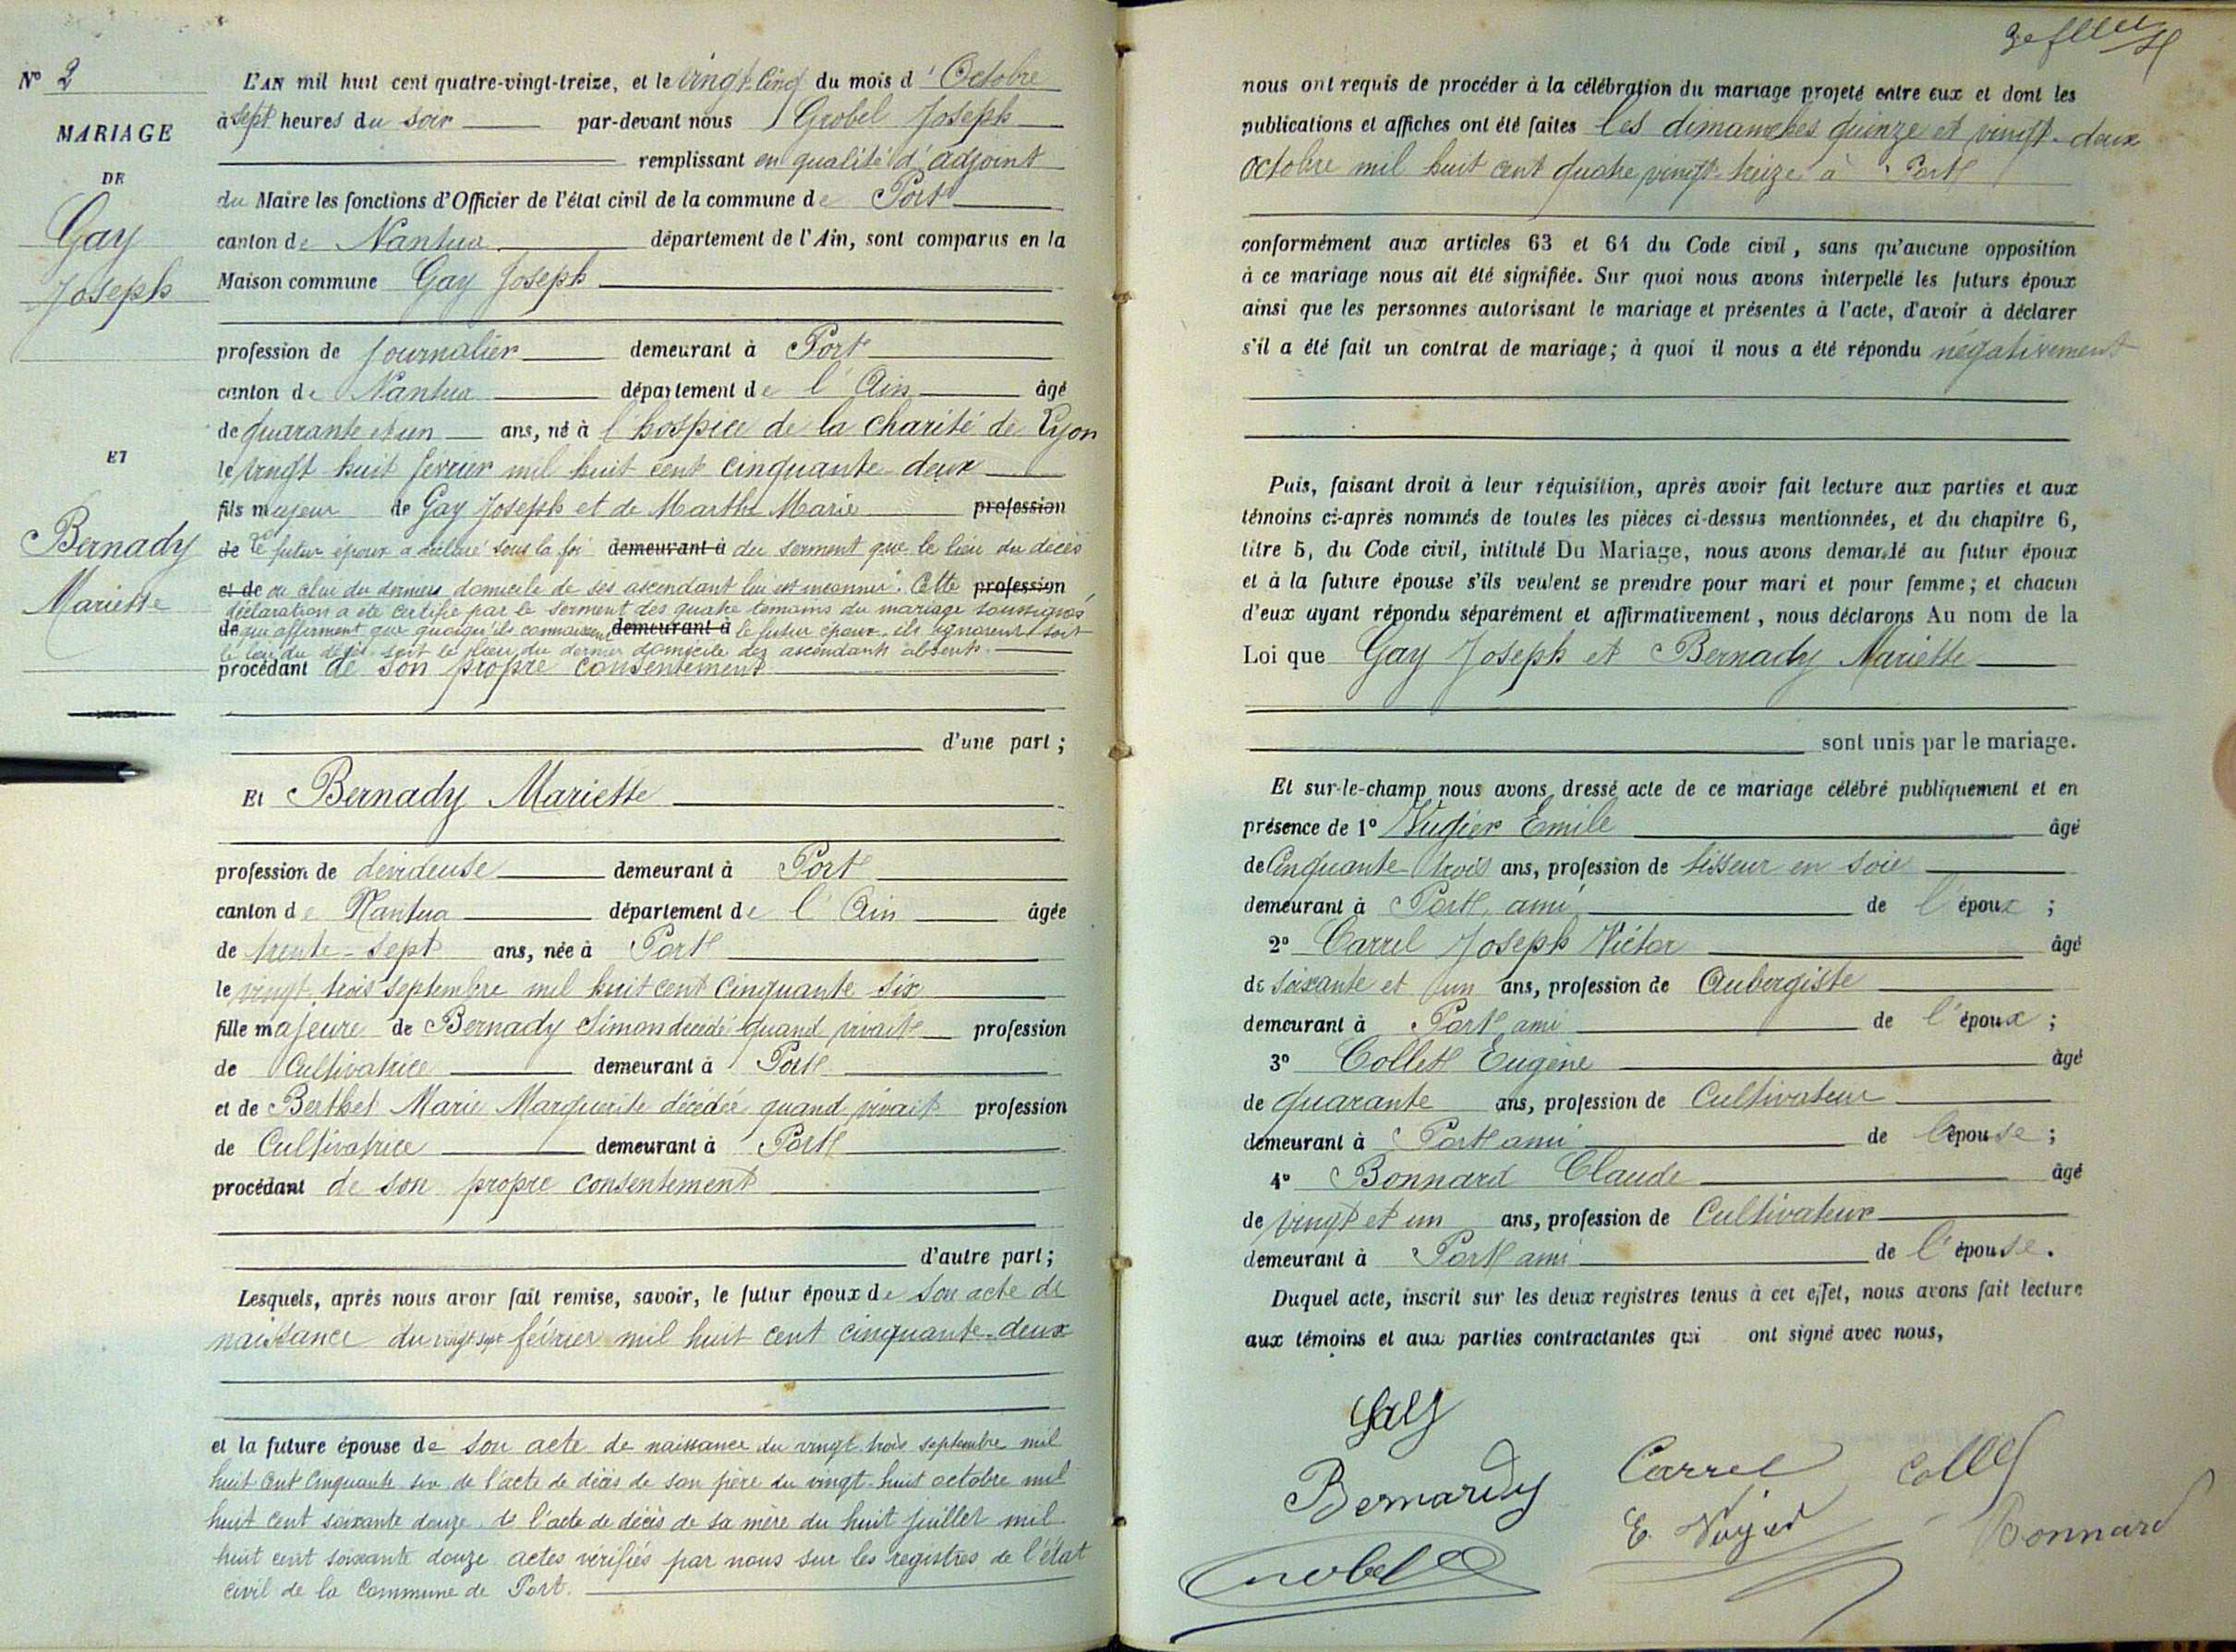 N° 2
MARIAGE
DE
Gay
Joseph
ET
Bernady
Mariette
L'AN mil huit cent quatre-vingt-treize, et le vingt-cinq du mois d'Octobre
à sept heures du soir par-devant nous Grobel Joseph
remplissant en qualité d'adjoint
du Maire les fonctions d'Officier de l'état civil de la commune de Port
canton de Nantua département de l'Ain, sont comparus en la
Maison commune Gay Joseph
profession de journalier demeurant à Port
canton de Nantua département de l'Ain âgé
de quarante et un ans, né à l'hospice de la charité de Lyon
le vingt huit février mil huit cent cinquante deux
fils majeur de Gay Joseph et de Marthe Marie profession
de Le futur époux a déclaré sous la foi demeurant à du serment que le lieu du décès
et de ou celui du derniers domicile de ses ascendant lui est inconnu. Cette profession
déclaration a été certifié par le serment des quatre temoins du mariage soussignés,
de qui affirment que quoiqu'ils connaissent demeurant à le futur époux, ils ignorent soit
le lieu du décès soit le lieu du dernier domicile des ascendants absents.
procédant de son propre consentement
d'une part ;
Et Bernady Mariette
profession de devideuse demeurant à Port
canton de Nantua département de l'Ain âgée
de trente-sept ans, née à Port
le vingt-trois septembre mil huit cent cinquante six
fille majeure de Bernady Simon décédé quand vivait profession
de Cultivatrice demeurant à Port
et de Berthet Marie Marguerite décédée quand vivait profession
de Cultivatrice demeurant à Port
procédant de son propre consentement
d'autre part ;
Lesquels, après nous avoir fait remise, savoir, le futur époux de son acte de
naissance du vingt sept février mil huit cent cinquante-deux
et la future épouse de son acte de naissance du vingt trois septembre mil
huit cent cinquante six de l'acte de décès de son père du vingt-huit octobre mil
huit cent soixante douze, de l'acte de décès de sa mère du huit juillet mil
huit cent soixante douze actes vérifiés par nous sur les registres de l'état
civil de la Commune de Port.
nous ont requis de procéder à la célébration du mariage projeté entre eux et dont les
publications et affiches ont été faites les dimanches quinze et vingt-deux
octobre mil huit cent quatre vingt-treize à Port
conformément aux articles 63 et 64 du Code civil, sans qu'aucune opposition
à ce mariage nous ait été signifiée. Sur quoi nous avons interpellé les futurs époux
ainsi que les personnes autorisant le mariage et présentes à l'acte, d'avoir à déclarer
s'il a été fait un contrat de mariage ; à quoi il nous a été répondu négativement
Puis, faisant droit à leur réquisition, après avoir fait lecture aux parties et aux
témoins ci-après nommés de toutes les pièces ci-dessus mentionnées, et du chapitre 6,
titre 5, du Code civil, intitulé Du Mariage, nous avons demandé au futur époux
et à la future épouse s'ils veulent se prendre pour mari et pour femme ; et chacun
d'eux ayant répondu séparément et affirmativement, nous déclarons Au nom de la
Loi que Gay Joseph et Bernady Mariette
sont unis par le mariage.
Et sur-le-champ nous avons dressé acte de ce mariage célébré publiquement et en
présence de 1° Vugier Emile âgé
de cinquante trois ans, profession de tisseur en soie
demeurant à Port, ami de l'époux ;
2° Carrel Joseph Victor âgé
de soixante et un ans, profession de Aubergiste
demeurant à Port ami de l'époux ;
3° Collet Eugène âgé
de quarante ans, profession de Cultivateur
demeurant à Port ami de l'épouse ;
4° Bonnard Claude âgé
de vingt et un ans, profession de Cultivateur
demeurant à Port ami de l'épouse.
Duquel acte, inscrit sur les deux registres tenus à cet effet, nous avons fait lecture
aux témoins et aux parties contractantes qui ont signé avec nous,
Gay
Bernardy
Carrel
Collet
E. Vugier
Bonnard
Grobel